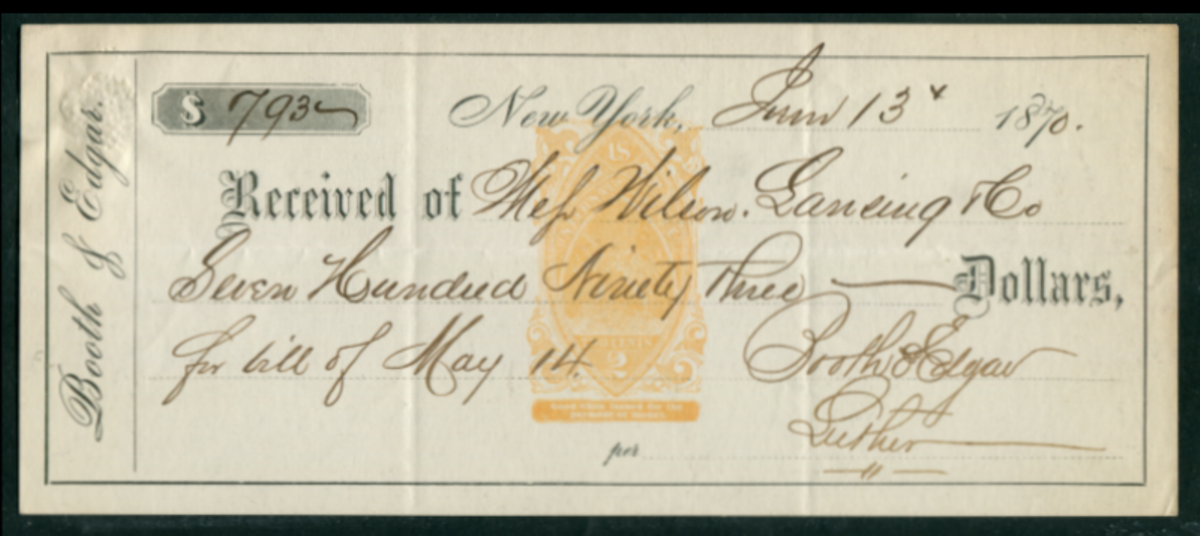 Booth & Edgar.
$ 793
New York, June 13 1870.
Received of Mess Wilson. Lansing & Co
Seven Hundred Ninety Three Dollars,
for bill of May 14.
Booth & Edgar
per Luther
U.S.
TWO CENTS
2